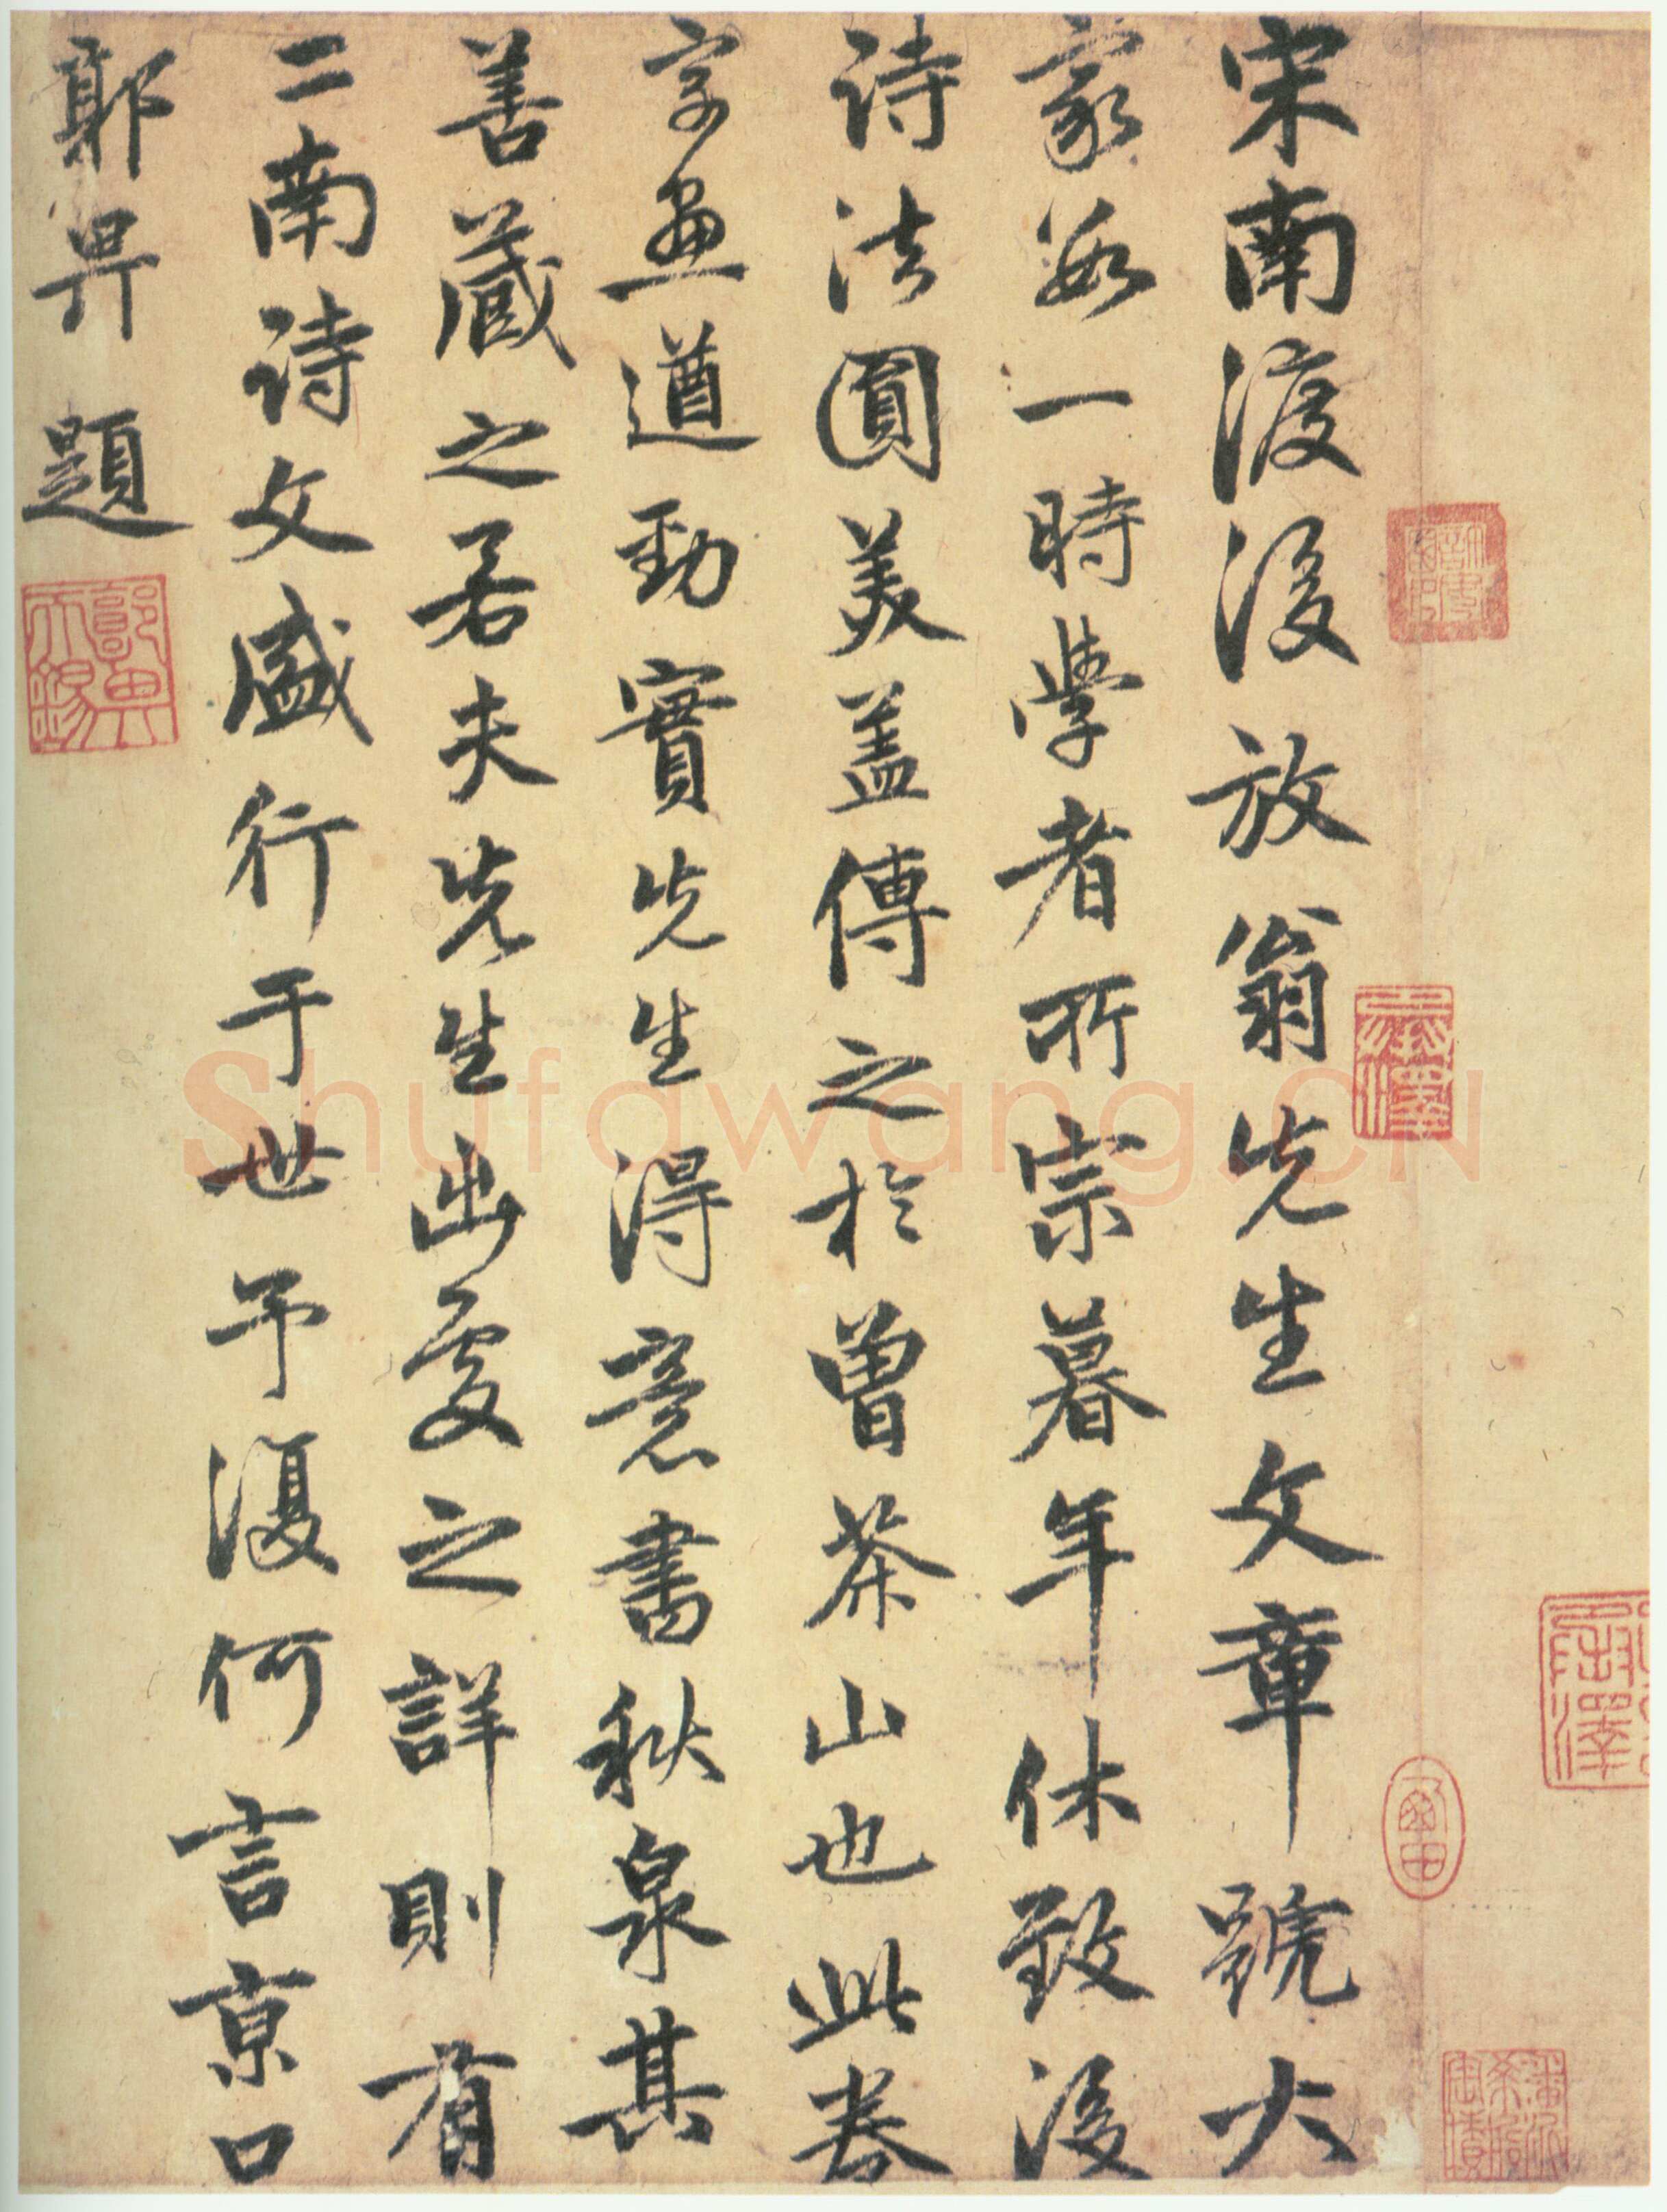 宋南渡後放翁先生文章號大
家數一時學者所宗暮年休致後
詩法圓美蓋傳之於曾茶山也此卷
字畫遒勁實先生得意書秋泉其
善藏之若夫先生出處之詳則有
二南詩文盛行于世予復何言京口
郭畀題
郭畀天錫
Shufawang.CN